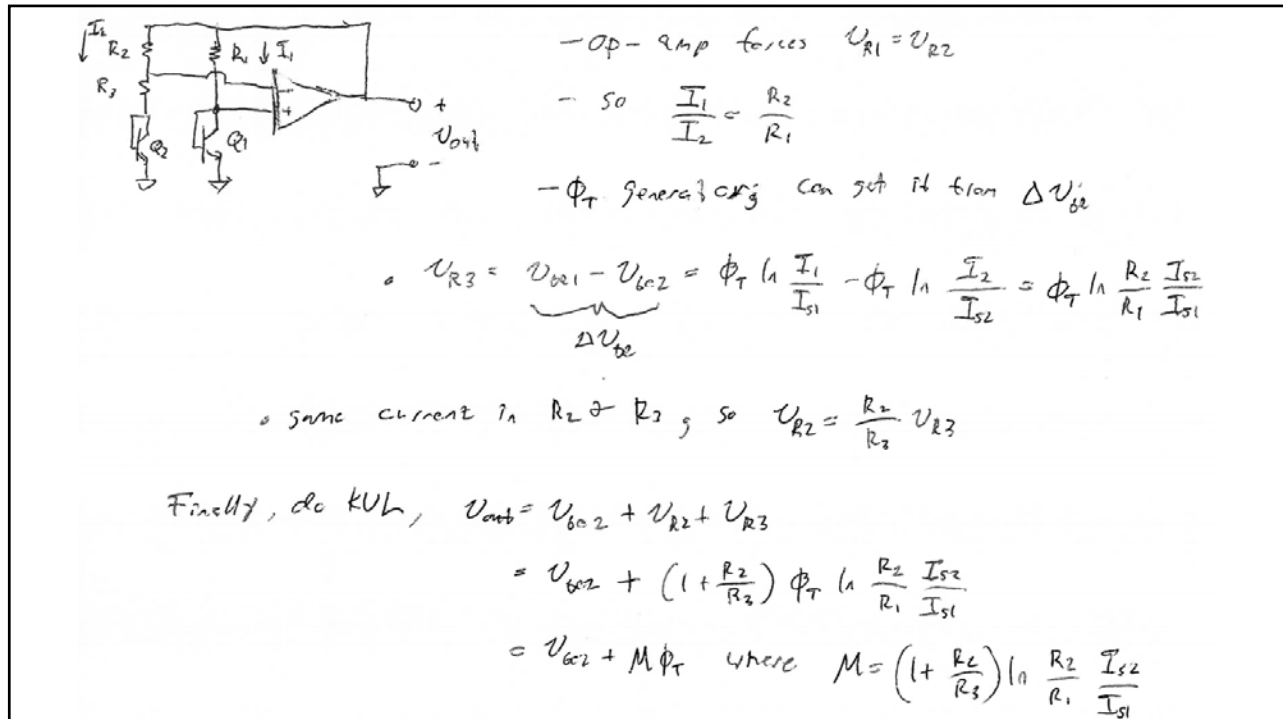 I₂
R₂ R₁ I₁
R₃
− +
+
Q₂ Q₁ V_out
−
- Op-amp forces V_R1 = V_R2
- so I₁/I₂ = R₂/R₁
- ϕ_T can get it from ΔV_be
• V_R3 = V_be1 - V_be2 = ϕ_T ln I₁/I_S1 - ϕ_T ln I₂/I_S2 = ϕ_T ln R₂/R₁ I_S2/I_S1
ΔV_be
• same current in R₂ & R₃, so V_R2 = R₂/R₃ V_R3
Finally, do KVL, V_out = V_be2 + V_R2 + V_R3
= V_be2 + (1 + R₂/R₃) ϕ_T ln R₂/R₁ I_S2/I_S1
= V_be2 + M ϕ_T where M = (1 + R₂/R₃) ln R₂/R₁ I_S2/I_S1